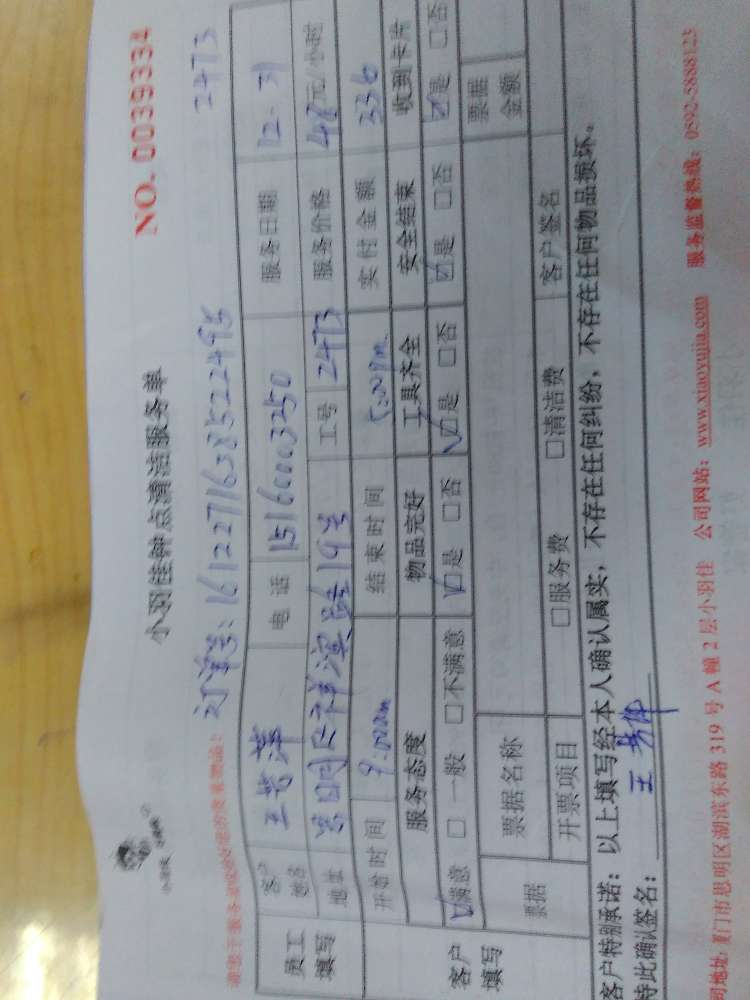 小羽佳
小羽佳钟点清洁服务单
NO. 0039334
订单号：161227163852249
2473
员工填写
客户姓名 王 电话 15160003250 服务日期 12.31
地址 思明区祥滨路19号 工号 2473 服务价格 48元/小时
开始时间 9:00am 结束时间 5:00pm 实付金额 336
客户填写
服务态度 物品完好 工具齐全 安全结束 收到卡片
☑满意 □一般 □不满意 ☑是 □否 ☑是 □否 ☑是 □否 ☑是 □否
票据 票据名称 票据金额
开票项目 □服务费 □清洁费 客户签名
客户特别承诺：以上填写经本人确认属实，不存在任何纠纷，不存在任何物品损坏。
特此确认签名：王
司地址：厦门市思明区湖滨东路319号A幢2层小羽佳 公司网站：www.xiaoyujia.com 服务监督热线：0592-5888123